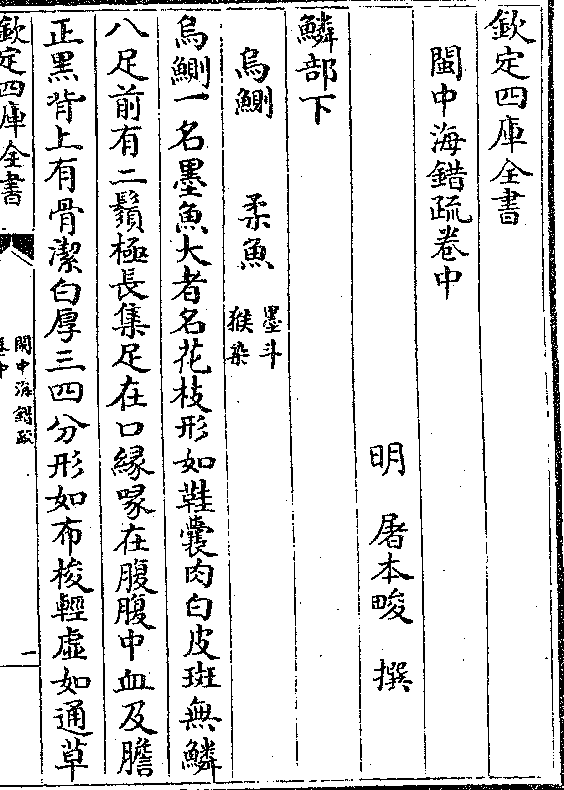 欽定四庫全書
閩中海錯疏卷中
明 屠本畯 撰
鱗部下
烏鰂 柔魚 墨斗 猴染
烏鰂一名墨魚大者名花枝形如鞋囊肉白皮斑無鱗
八足前有二鬚極長集足在口縁喙在腹腹中血及膽
正黑背上有骨潔白厚三四分形如布梭輕虛如通草
欽定四庫全書
閩中海錯疏
卷中
一